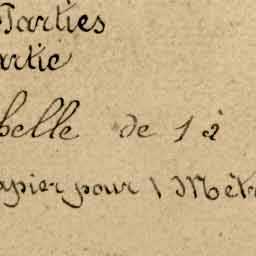 Parties
artie
helle de 1 à
apier pour 1 Mètr